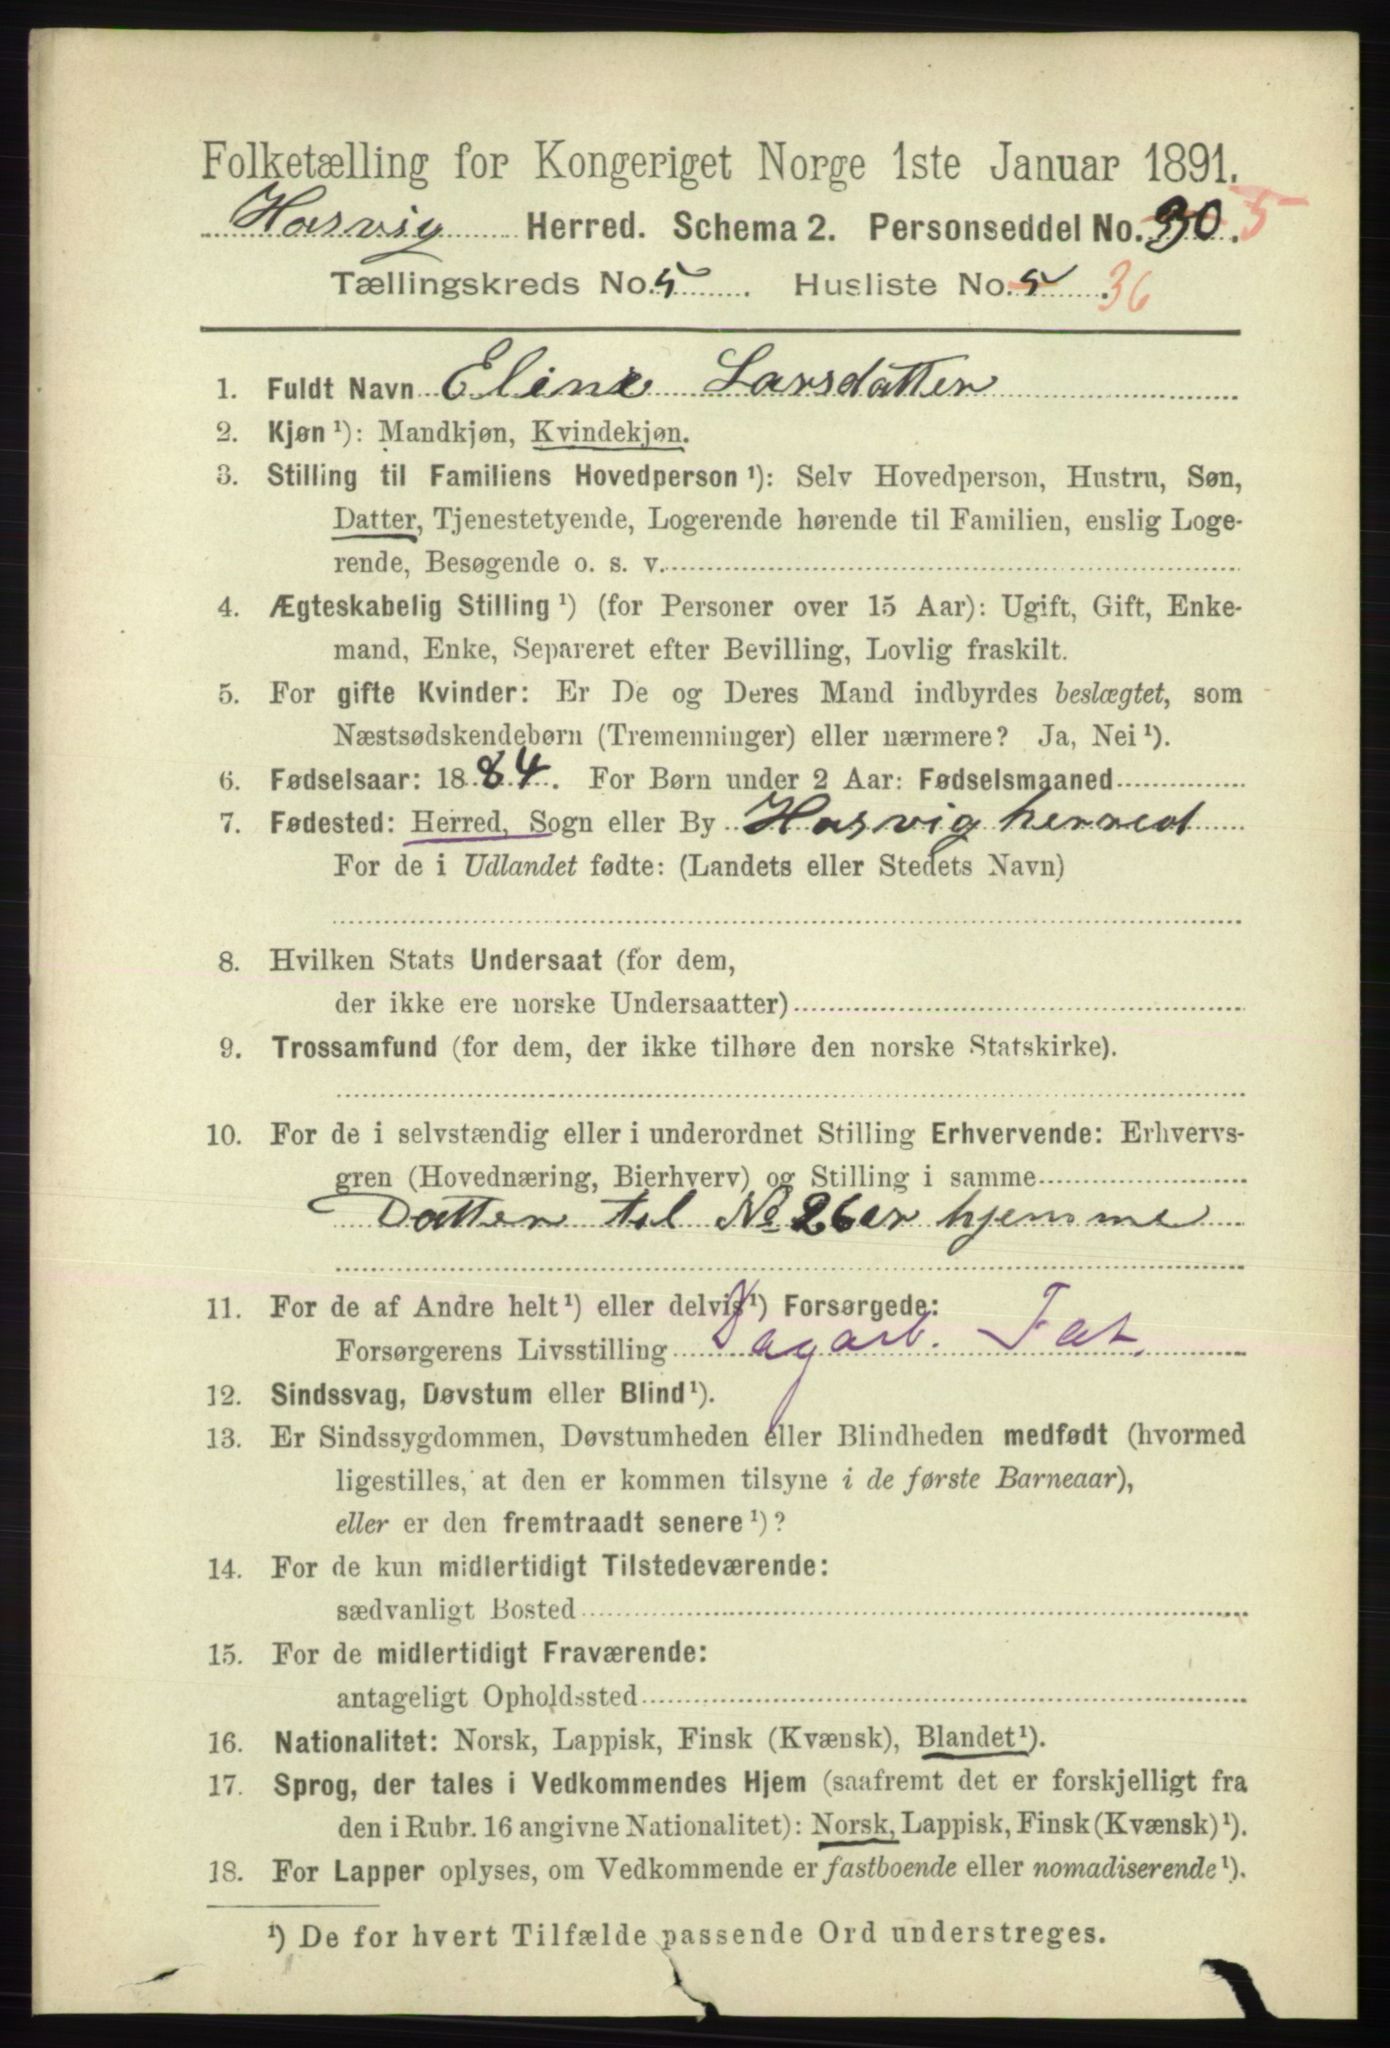 Folketælling for Kongeriget Norge 1ste Januar 1891.
Hasvig Herred. Schema 2. Personseddel No. 30. 5
Tællingskreds No. 5. Husliste No. 5. 36
1. Fuldt Navn Eline Larsdatter
2. Kjøn ¹): Mandkjøn, Kvindekjøn.
3. Stilling til Familiens Hovedperson ¹): Selv Hovedperson, Hustru, Søn,
Datter, Tjenestetyende, Logerende hørende til Familien, enslig Loge-
rende, Besøgende o. s. v.
4. Ægteskabelig Stilling ¹) (for Personer over 15 Aar): Ugift, Gift, Enke-
mand, Enke, Separeret efter Bevilling, Lovlig fraskilt.
5. For gifte Kvinder: Er De og Deres Mand indbyrdes beslægtet, som
Næstsødskendebørn (Tremenninger) eller nærmere? Ja, Nei ¹).
6. Fødselsaar: 1884. For Børn under 2 Aar: Fødselsmaaned
7. Fødested: Herred, Sogn eller By Hasvig herred
For de i Udlandet fødte: (Landets eller Stedets Navn)
8. Hvilken Stats Undersaat (for dem,
der ikke ere norske Undersaatter)
9. Trossamfund (for dem, der ikke tilhøre den norske Statskirke).
10. For de i selvstændig eller i underordnet Stilling Erhvervende: Erhvervs-
gren (Hovednæring, Bierhverv) og Stilling i samme
Datter til No 26 er hjemme
11. For de af Andre helt ¹) eller delvis ¹) Forsørgede:
Forsørgerens Livsstilling Dagarb. Fat.
12. Sindssvag, Døvstum eller Blind ¹).
13. Er Sindssygdommen, Døvstumheden eller Blindheden medfødt (hvormed
ligestilles, at den er kommen tilsyne i de første Barneaar),
eller er den fremtraadt senere ¹)?
14. For de kun midlertidigt Tilstedeværende:
sædvanligt Bosted
15. For de midlertidigt Fraværende:
antageligt Opholdssted
16. Nationalitet: Norsk, Lappisk, Finsk (Kvænsk), Blandet ¹).
17. Sprog, der tales i Vedkommendes Hjem (saafremt det er forskjelligt fra
den i Rubr. 16 angivne Nationalitet): Norsk, Lappisk, Finsk (Kvænsk) ¹).
18. For Lapper oplyses, om Vedkommende er fastboende eller nomadiserende ¹).
¹) De for hvert Tilfælde passende Ord understreges.